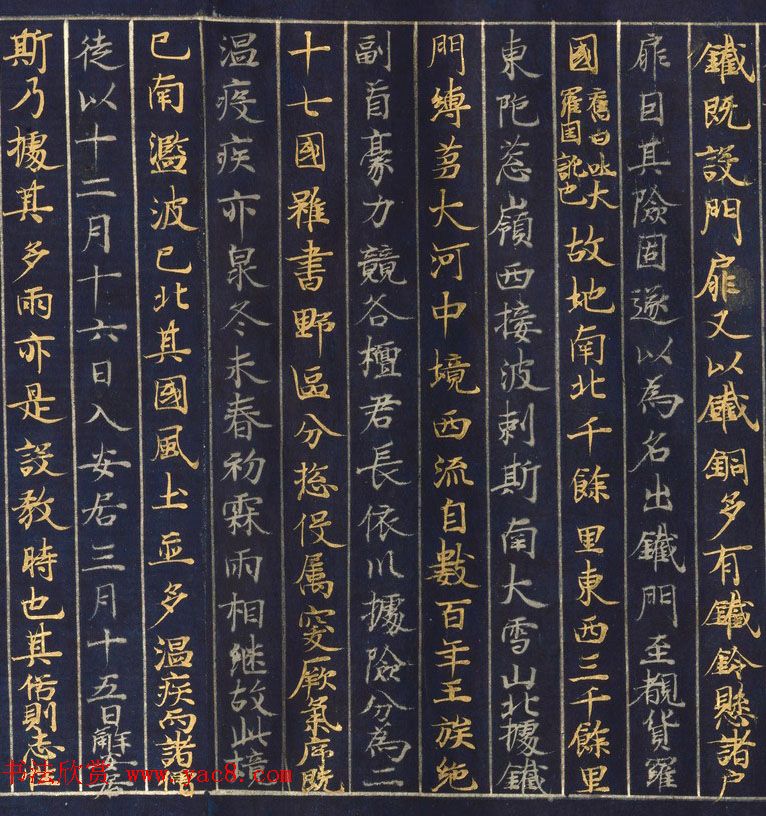 鐵既設門扉又以鐵銅多有鐵鈴懸諸戶
扉因其險固遂以為名出鐵門至覩貨羅
國舊曰吐大羅国訛也故地南北千餘里東西三千餘里
東陁葱嶺西接波剌斯南大雪山北據鐵
門縛芻大河中境西流自數百年王族絶
副首豪力競各檀君長依川據險分為二
十七國雖書野區分惣侵属窣厥氣序既
温疫疾亦泉冬末春初霖雨相継故此境
已南濫波已北其國風土並多温疾而諸僧
徒以十二月十六日入安居三月十五日解安居
斯乃據其多雨亦是設教時也其俗則志性
书法欣赏 www.yac8.com